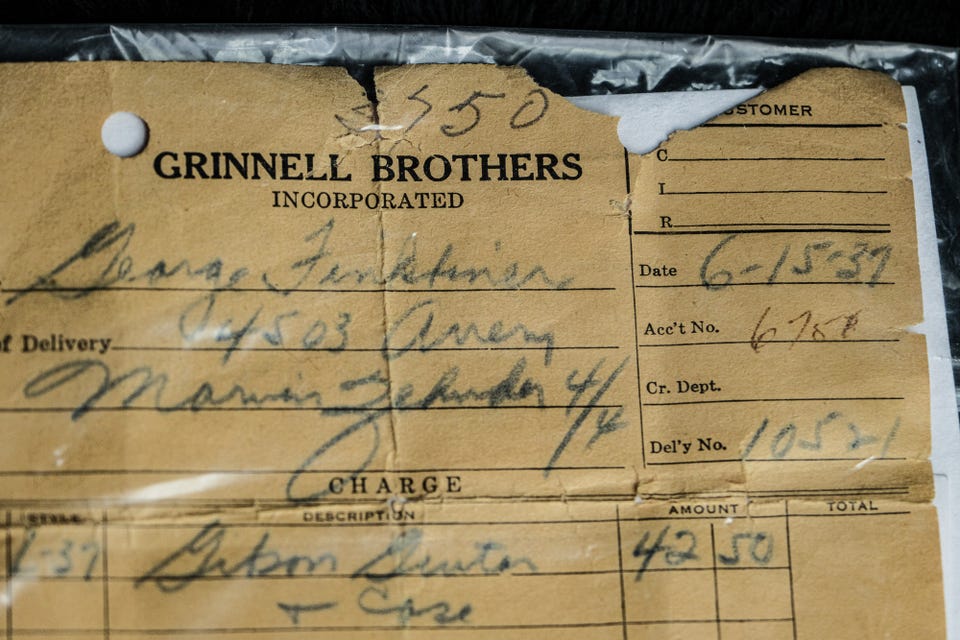 550
GRINNELL BROTHERS
INCORPORATED
STOMER
C
I
R
George Finkbiner
Date 6-15-37
f Delivery 4503 Avery
Acc't No. 6758
Marvin Zehnder 4/4
Cr. Dept.
Del'y No. 10521
CHARGE
STYLE DESCRIPTION AMOUNT TOTAL
L-37 Gibson Guitar 42 50
+ Case